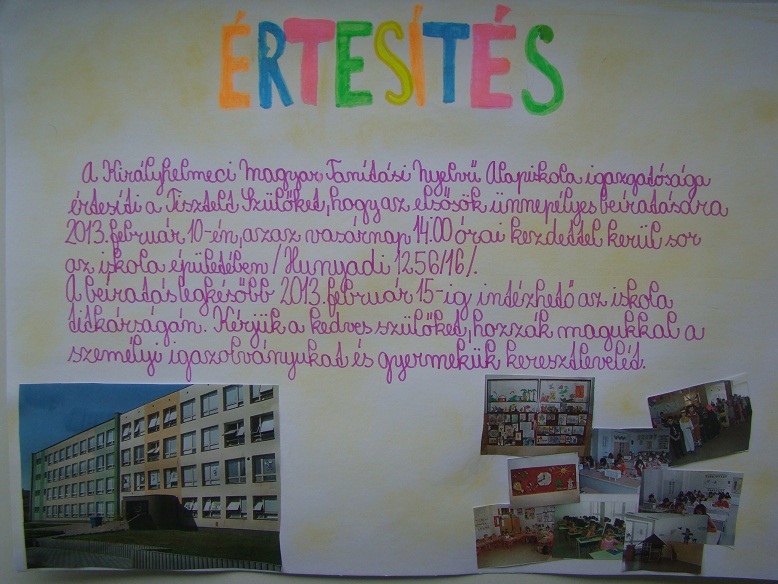 ÉRTESÍTÉS
A Királyhelmeci Magyar Tanítási Nyelvű Alapiskola igazgatósága
értesíti a Tisztelt Szülőket, hogy az elsősök ünnepélyes beíratására
2013. február 10-én, azaz vasárnap 14.00 órai kezdettel kerül sor
az iskola épületében / Hunyadi 1256/16 /.
A beíratás legkésőbb 2013. február 15-ig intézhető az iskola
titkárságán. Kérjük a kedves szülőket, hozzák magukkal a
személyi igazolványukat és gyermekük keresztlevelét.